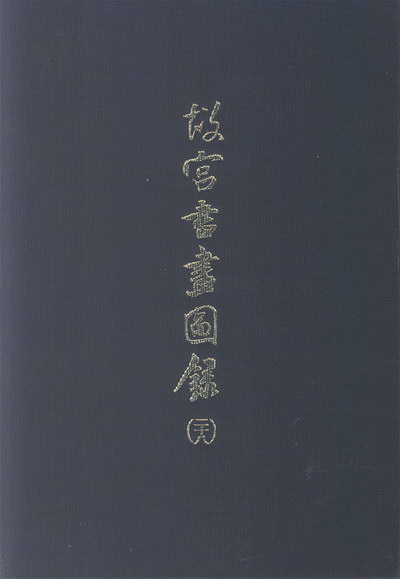 故宮書畫圖錄(二十八)